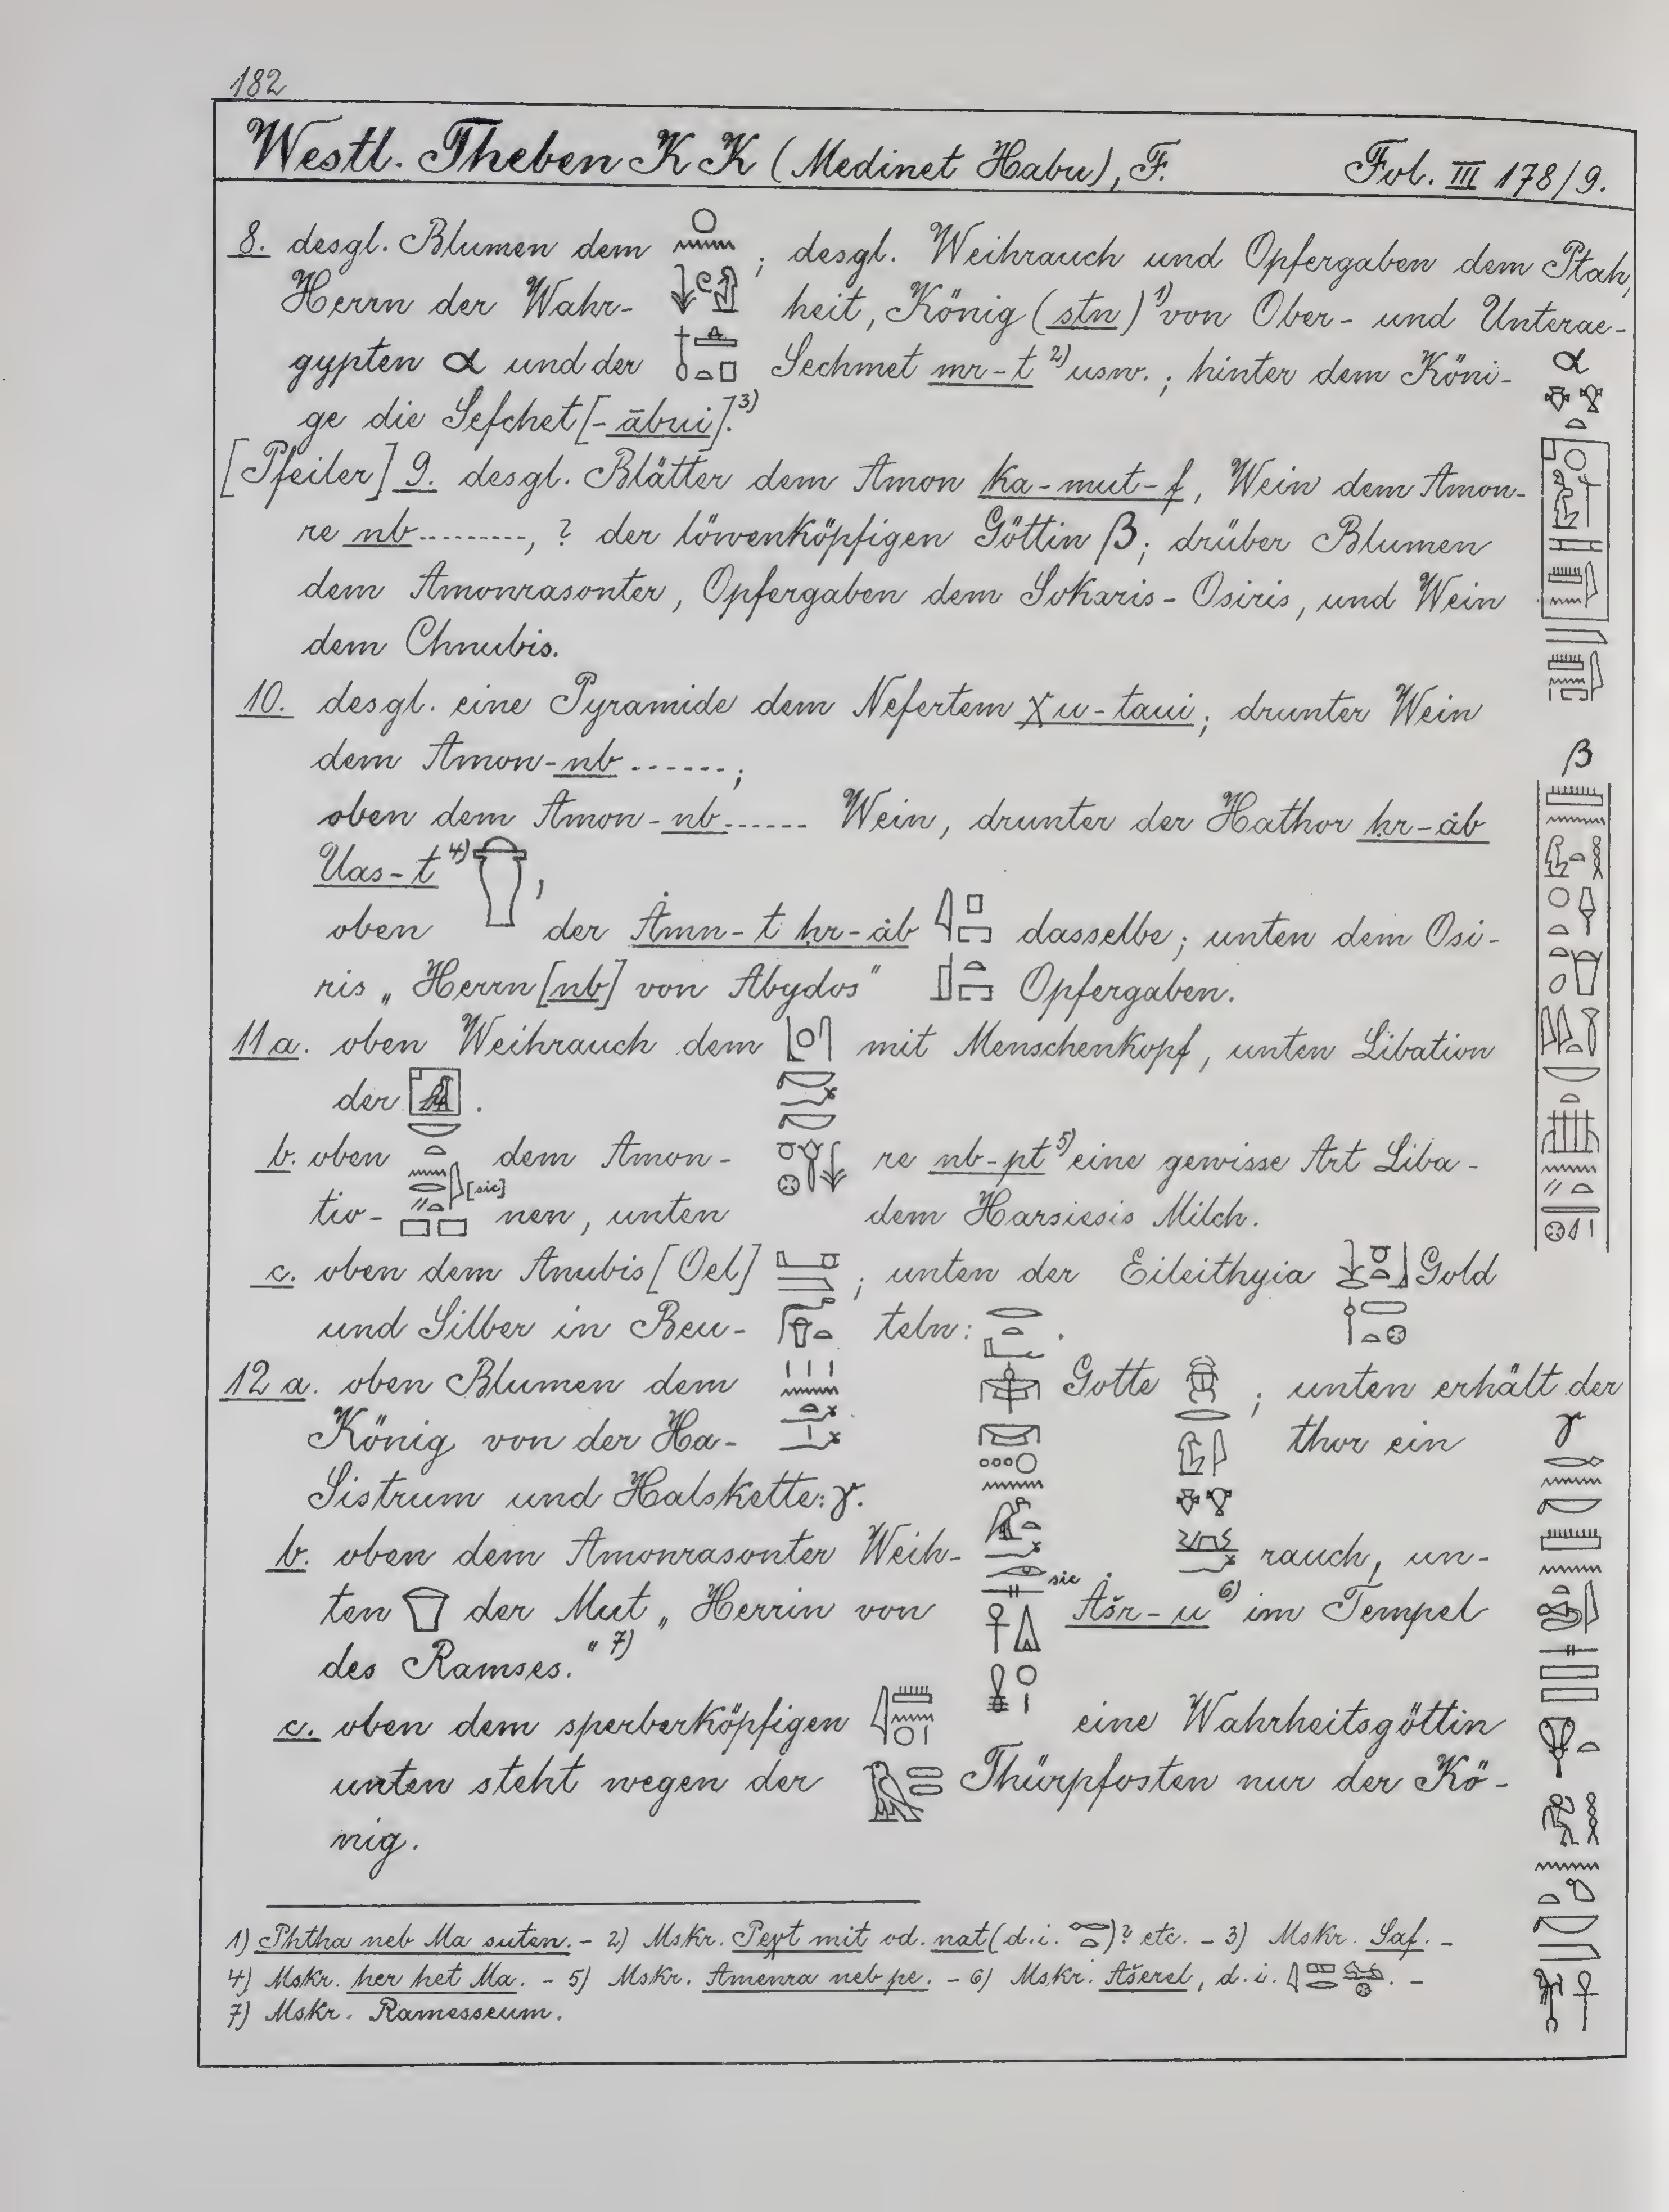 182
Westl. Theben KK (Medinet Habu), F. Fol. III 178/9.
8. desgl. Blumen dem ; desgl. Weihrauch und Opfergaben dem Ptah,
Herrn der Wahr- heit, König (stn)¹⁾ von Ober- und Unterae-
gypten α und der Sechmet mr-t²⁾ usw.; hinter dem Köni-
ge die Sefchet [-ābui].³⁾
[Pfeiler] 9. desgl. Blätter dem Amon ka-mut-f, Wein dem Amon-
re nb........., ? der löwenköpfigen Göttin β; drüber Blumen
dem Amonrasonter, Opfergaben dem Sokaris-Osiris, und Wein
dem Chnubis.
10. desgl. eine Pyramide dem Nefertem χu-taui; drunter Wein
dem Amon-nb ......;
oben dem Amon-nb...... Wein, drunter der Hathor ḥr-ȧb
Uas-t⁴⁾ ,
oben der Ȧmn-t ḥr-ȧb dasselbe; unten dem Osi-
ris „Herrn [nb] von Abydos" Opfergaben.
11a. oben Weihrauch dem mit Menschenkopf, unten Libation
der .
b. oben dem Amon- re nb-pt⁵⁾ eine gewisse Art Liba-
[sic]
tio- nen, unten dem Harsiesis Milch.
c. oben dem Anubis [Oel] ; unten der Eileithyia Gold
und Silber in Beu- teln: .
12a. oben Blumen dem Gotte ; unten erhält der
König von der Ha- thor ein
Sistrum und Halskette: γ.
b. oben dem Amonrasonter Weih- rauch, un-
sic
ten der Mut „Herrin von Ašr-u⁶⁾ im Tempel
des Ramses."⁷⁾
c. oben dem sperberköpfigen eine Wahrheitsgöttin
unten steht wegen der Thürpfosten nur der Kö-
nig.
α
β
γ
1) Phtha neb Ma suten. - 2) Mskr. Peχt mit od. nat (d.i. )? etc. - 3) Mskr. Saf. -
4) Mskr. her het Ma. - 5) Mskr. Amenra neb pe. - 6) Mskr. Ašerel, d. i. . -
7) Mskr. Ramesseum.